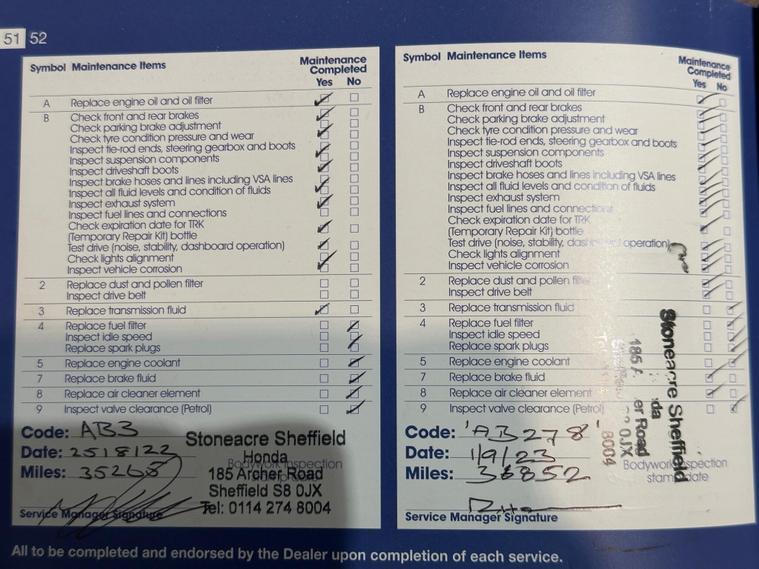 51 52
Symbol Maintenance Items
Maintenance
Completed
Yes No
A Replace engine oil and oil filter
B Check front and rear brakes
Check parking brake adjustment
Check tyre condition pressure and wear
Inspect tie-rod ends, steering gearbox and boots
Inspect suspension components
Inspect driveshaft boots
Inspect brake hoses and lines including VSA lines
Inspect all fluid levels and condition of fluids
Inspect exhaust system
Inspect fuel lines and connections
Check expiration date for TRK
(Temporary Repair Kit) bottle
Test drive (noise, stability, dashboard operation)
Check lights alignment
Inspect vehicle corrosion
2 Replace dust and pollen filter
Inspect drive belt
3 Replace transmission fluid
4 Replace fuel filter
Inspect idle speed
Replace spark plugs
5 Replace engine coolant
7 Replace brake fluid
8 Replace air cleaner element
9 Inspect valve clearance (Petrol)
Code: AB3
Date: 25/8/22
Miles: 35265
Service Manager Signature
Stoneacre Sheffield
Honda
Bodywork Inspection
185 Archer Road
Sheffield S8 0JX
Tel: 0114 274 8004
Symbol Maintenance Items
Maintenance
Completed
Yes No
A Replace engine oil and oil filter
B Check front and rear brakes
Check parking brake adjustment
Check tyre condition pressure and wear
Inspect tie-rod ends, steering gearbox and boots
Inspect suspension components
Inspect driveshaft boots
Inspect brake hoses and lines including VSA lines
Inspect all fluid levels and condition of fluids
Inspect exhaust system
Inspect fuel lines and connections
Check expiration date for TRK
(Temporary Repair Kit) bottle
Test drive (noise, stability, dashboard operation)
Check lights alignment
Inspect vehicle corrosion
2 Replace dust and pollen filter
Inspect drive belt
3 Replace transmission fluid
4 Replace fuel filter
Inspect idle speed
Replace spark plugs
5 Replace engine coolant
7 Replace brake fluid
8 Replace air cleaner element
9 Inspect valve clearance (Petrol)
Code: 'AB278'
Date: 1/9/23
Miles: 36852
Service Manager Signature
Stoneacre Sheffield
da
185 A er Road
0JX
8004
Bodywork spection
stamp date
All to be completed and endorsed by the Dealer upon completion of each service.